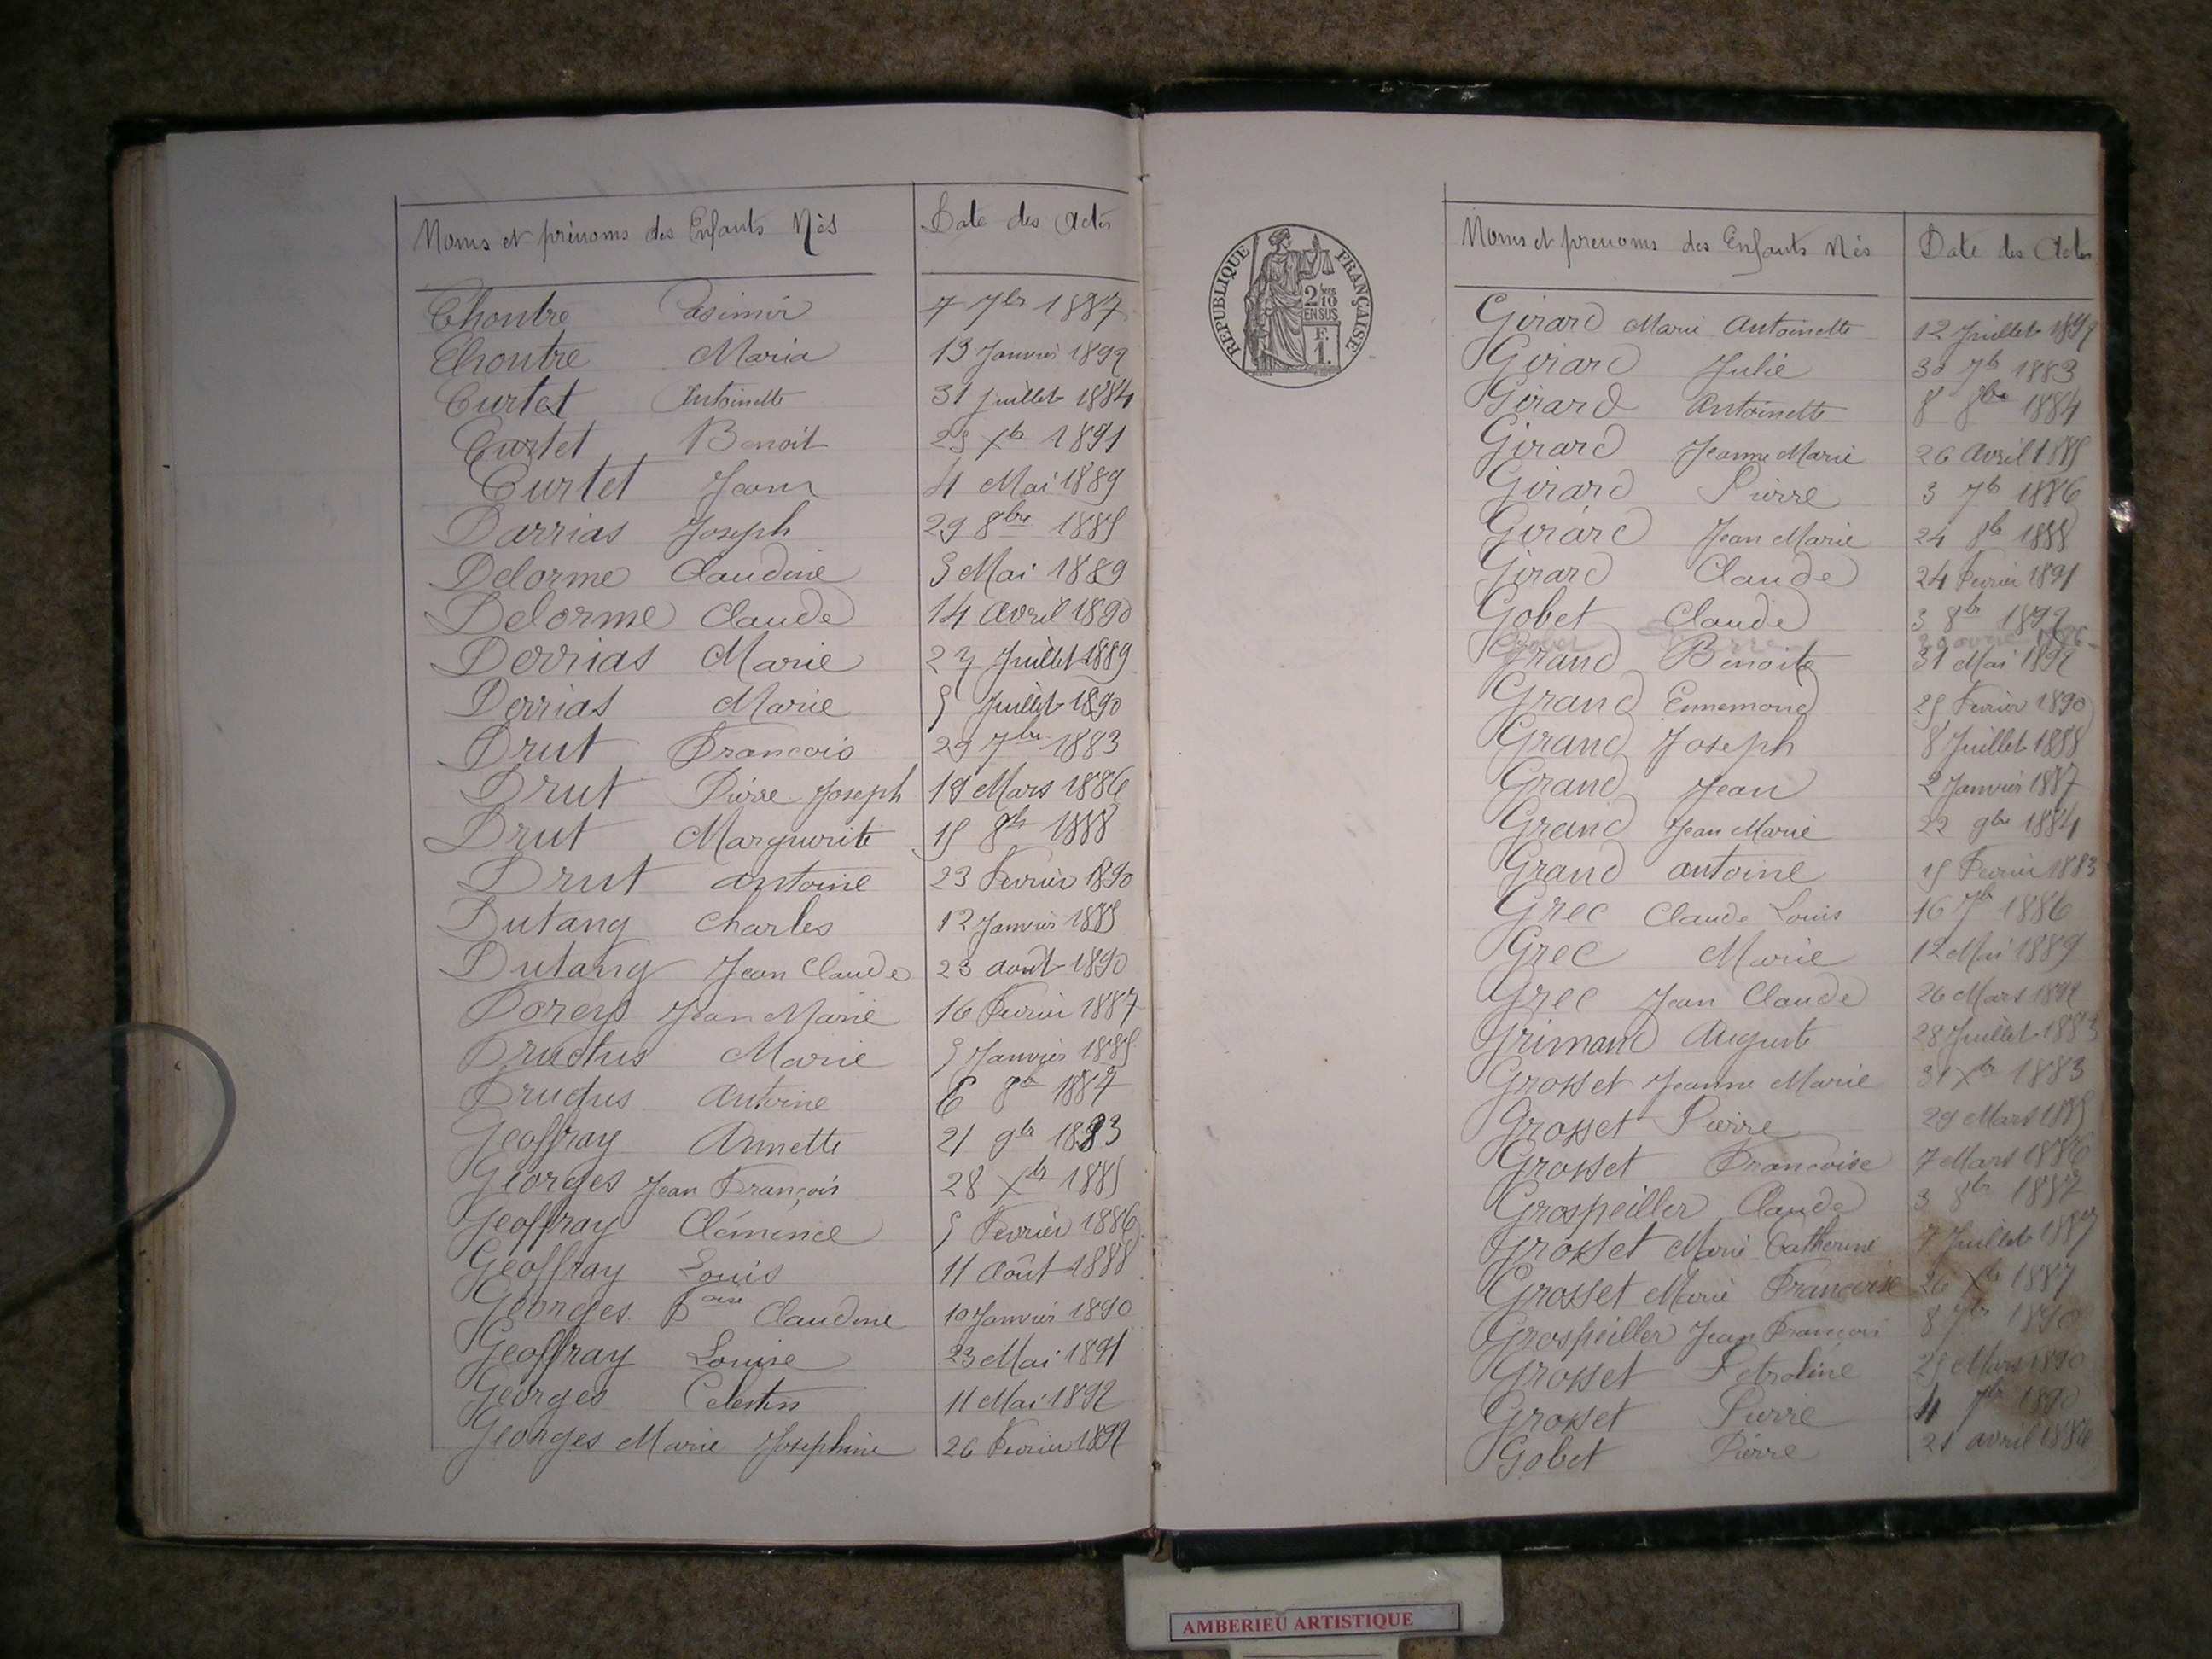 Noms et prénoms des Enfants Nés Date des Actes
Choutre Casimir 7 7br 1887
Choutre Maria 13 Janvier 1892
Curtet Antoinette 31 juillet 1884
Curtet Benoit 25 Xbr 1891
Curtet Jean 4 Mai 1889
Darrias Joseph 29 8bre 1885
Delorme Claudine 3 Mai 1889
Delorme Claude 14 avril 1890
Derrias Marie 27 Juillet 1889
Derrias Marie 5 Juillet 1890
Drut Francois 29 7bre 1883
Drut Pierre Joseph 19 Mars 1886
Drut Marguerite 15 8br 1888
Drut antoine 23 Fevrier 1890
Dutang Charles 12 Janvier 1885
Dutang Jean Claude 23 août 1890
Dorey Jean Marie 16 Fevrier 1887
Dructus Marie 5 Janvier 1885
Dructus Antoine 6 8br 1887
Geoffray Annette 21 9br 1883
Georges Jean François 28 Xbr 1885
Geoffray Clémence 5 Fevrier 1886
Geoffray Louis 11 Août 1888
Georges Foise Claudine 10 Janvier 1890
Geoffray Louise 23 Mai 1891
Georges Celestin 11 Mai 1892
Georges Marie Josephine 26 Fevrier 1892
REPUBLIQUE FRANÇAISE
2/10
EN SUS
F.
1.
Noms et prenoms des Enfants Nés Date des Actes
Girard Marie Antoinette 12 Juillet
Girard Julie 30 7br 1883
Girard Antoinette 8 8bre 1884
Girard Jeanne Marie 26 Avril 1885
Girard Pierre 3 7br 1886
Girard Jean Marie 24 8br 1888
Girard Claude 24 Fevrier 1891
Gobet Claude 3 8br 1892
Grand Benoite 31 Mai 1892
Grand Ennemond 25 Fevrier 1890
Grand Joseph 8 Juillet 1888
Grand Jean 2 Janvier 1887
Grand Jean Marie 22 9bre 1884
Grand antoine 15 Fevrier 1883
Grec Claude Louis 16 7br 1886
Grec Marie 12 Mai 1889
Grec Jean Claude 26 Mars 1892
Grimand Auguste 28 Juillet 1883
Grosset Jeanne Marie 31 Xbr 1883
Grosset Pierre 29 Mars 1885
Grosset Francoise 7 Mars 1886
Grospeiller Claude 3 8br 1887
Grosset Marie Catherine 7 Juillet 1887
Grosset Marie Francoise 26 Xbr 1887
Grospeiller Jean Francois 8 7br 1890
Grosset Petroline 25 Mars 1890
Grosset Pierre 4 7br 1890
Gobet Pierre 21 avril 1886
AMBERIEU ARTISTIQUE